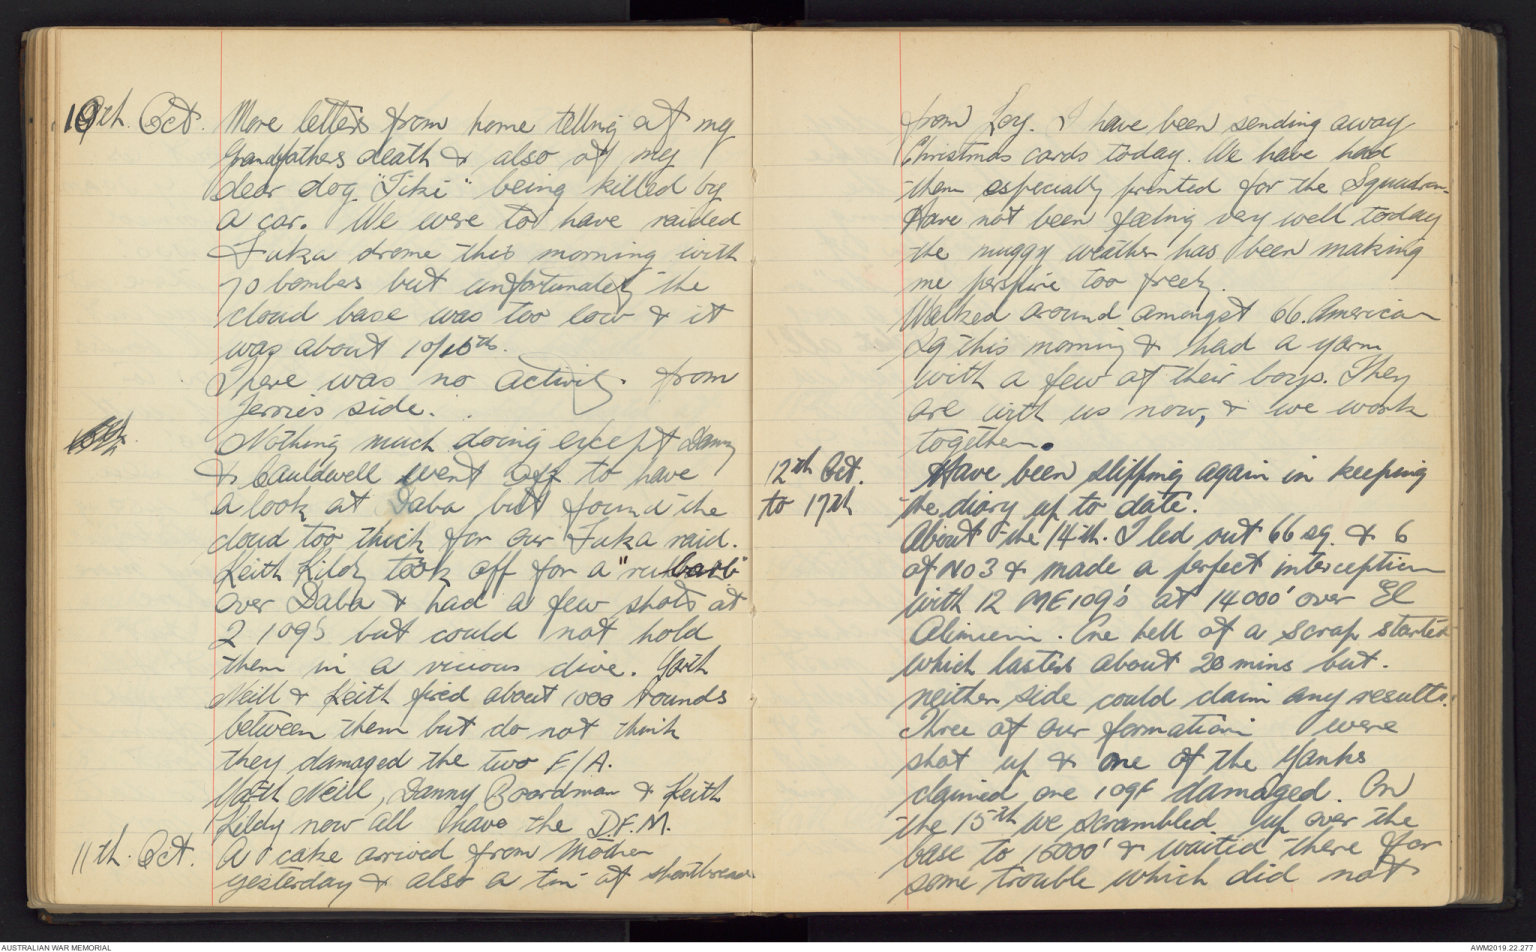 10th. Oct. More letters from home telling of my
Grandfathers death & also of my
dear dog "Tiki" being killed by
a car. We were to have raided
Fuka drome this morning with
70 bombers but unfortunately the
cloud base was too low & it
was about 10/10ths.
There was no activity from
Jerries side.
Nothing much doing except Danny
& Cauldwell went off to have
a look at Daba but found the
cloud too thick for our Fuka raid.
Keith Kildy took off for a "rhubarb"
over Daba & had a few shots at
2 109's but could not hold
them in a vicious dive. Garth
Neill & Keith fired about 1000 rounds
between them but do not think
they damaged the two E/A.
Garth Neill, Danny Boardman & Keith
Kildy now all have the D.F.M.
11th. Oct. A cake arrived from Mother
yesterday & also a tin of shortbread
from Loy. I have been sending away
Christmas cards today. We have had
them especially printed for the Squadron.
Have not been feeling very well today
the muggy weather has been making
me perspire too freely.
Walked around amongst 66. American
Sq this morning & had a yarn
with a few of their boys. They
are with us now, & we work
together.
12th Oct. Have been slipping again in keeping
to 17th the diary up to date.
About the 14th. I led out 66 sq. & 6
of No 3 & made a perfect interception
with 12 ME109's at 14000' over El
Alimiein. One hell of a scrap started
which lasted about 20 mins but.
neither side could claim any results.
Three of our formation were
shot up & one of the Yanks
claimed one 109F damaged. On
the 15th we scrambled up over the
base to 16000' & waited there for
some trouble which did not
AUSTRALIAN WAR MEMORIAL
AWM2019.22.277